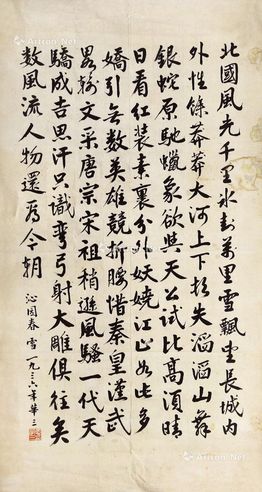 北國風光千里冰封萬里雪飄望長城內
外惟餘莽莽大河上下頓失滔滔山舞
銀蛇原馳蠟象欲與天公試比高須晴
日看红装素裹分外妖嬈江山如此多
嬌引无数英雄競折腰惜秦皇漢武
畧輸文采唐宗宋祖稍遜風騷一代天
驕成吉思汗只識彎弓射大雕俱往矣
数風流人物還看今朝
沁园春 雪 一九三六年